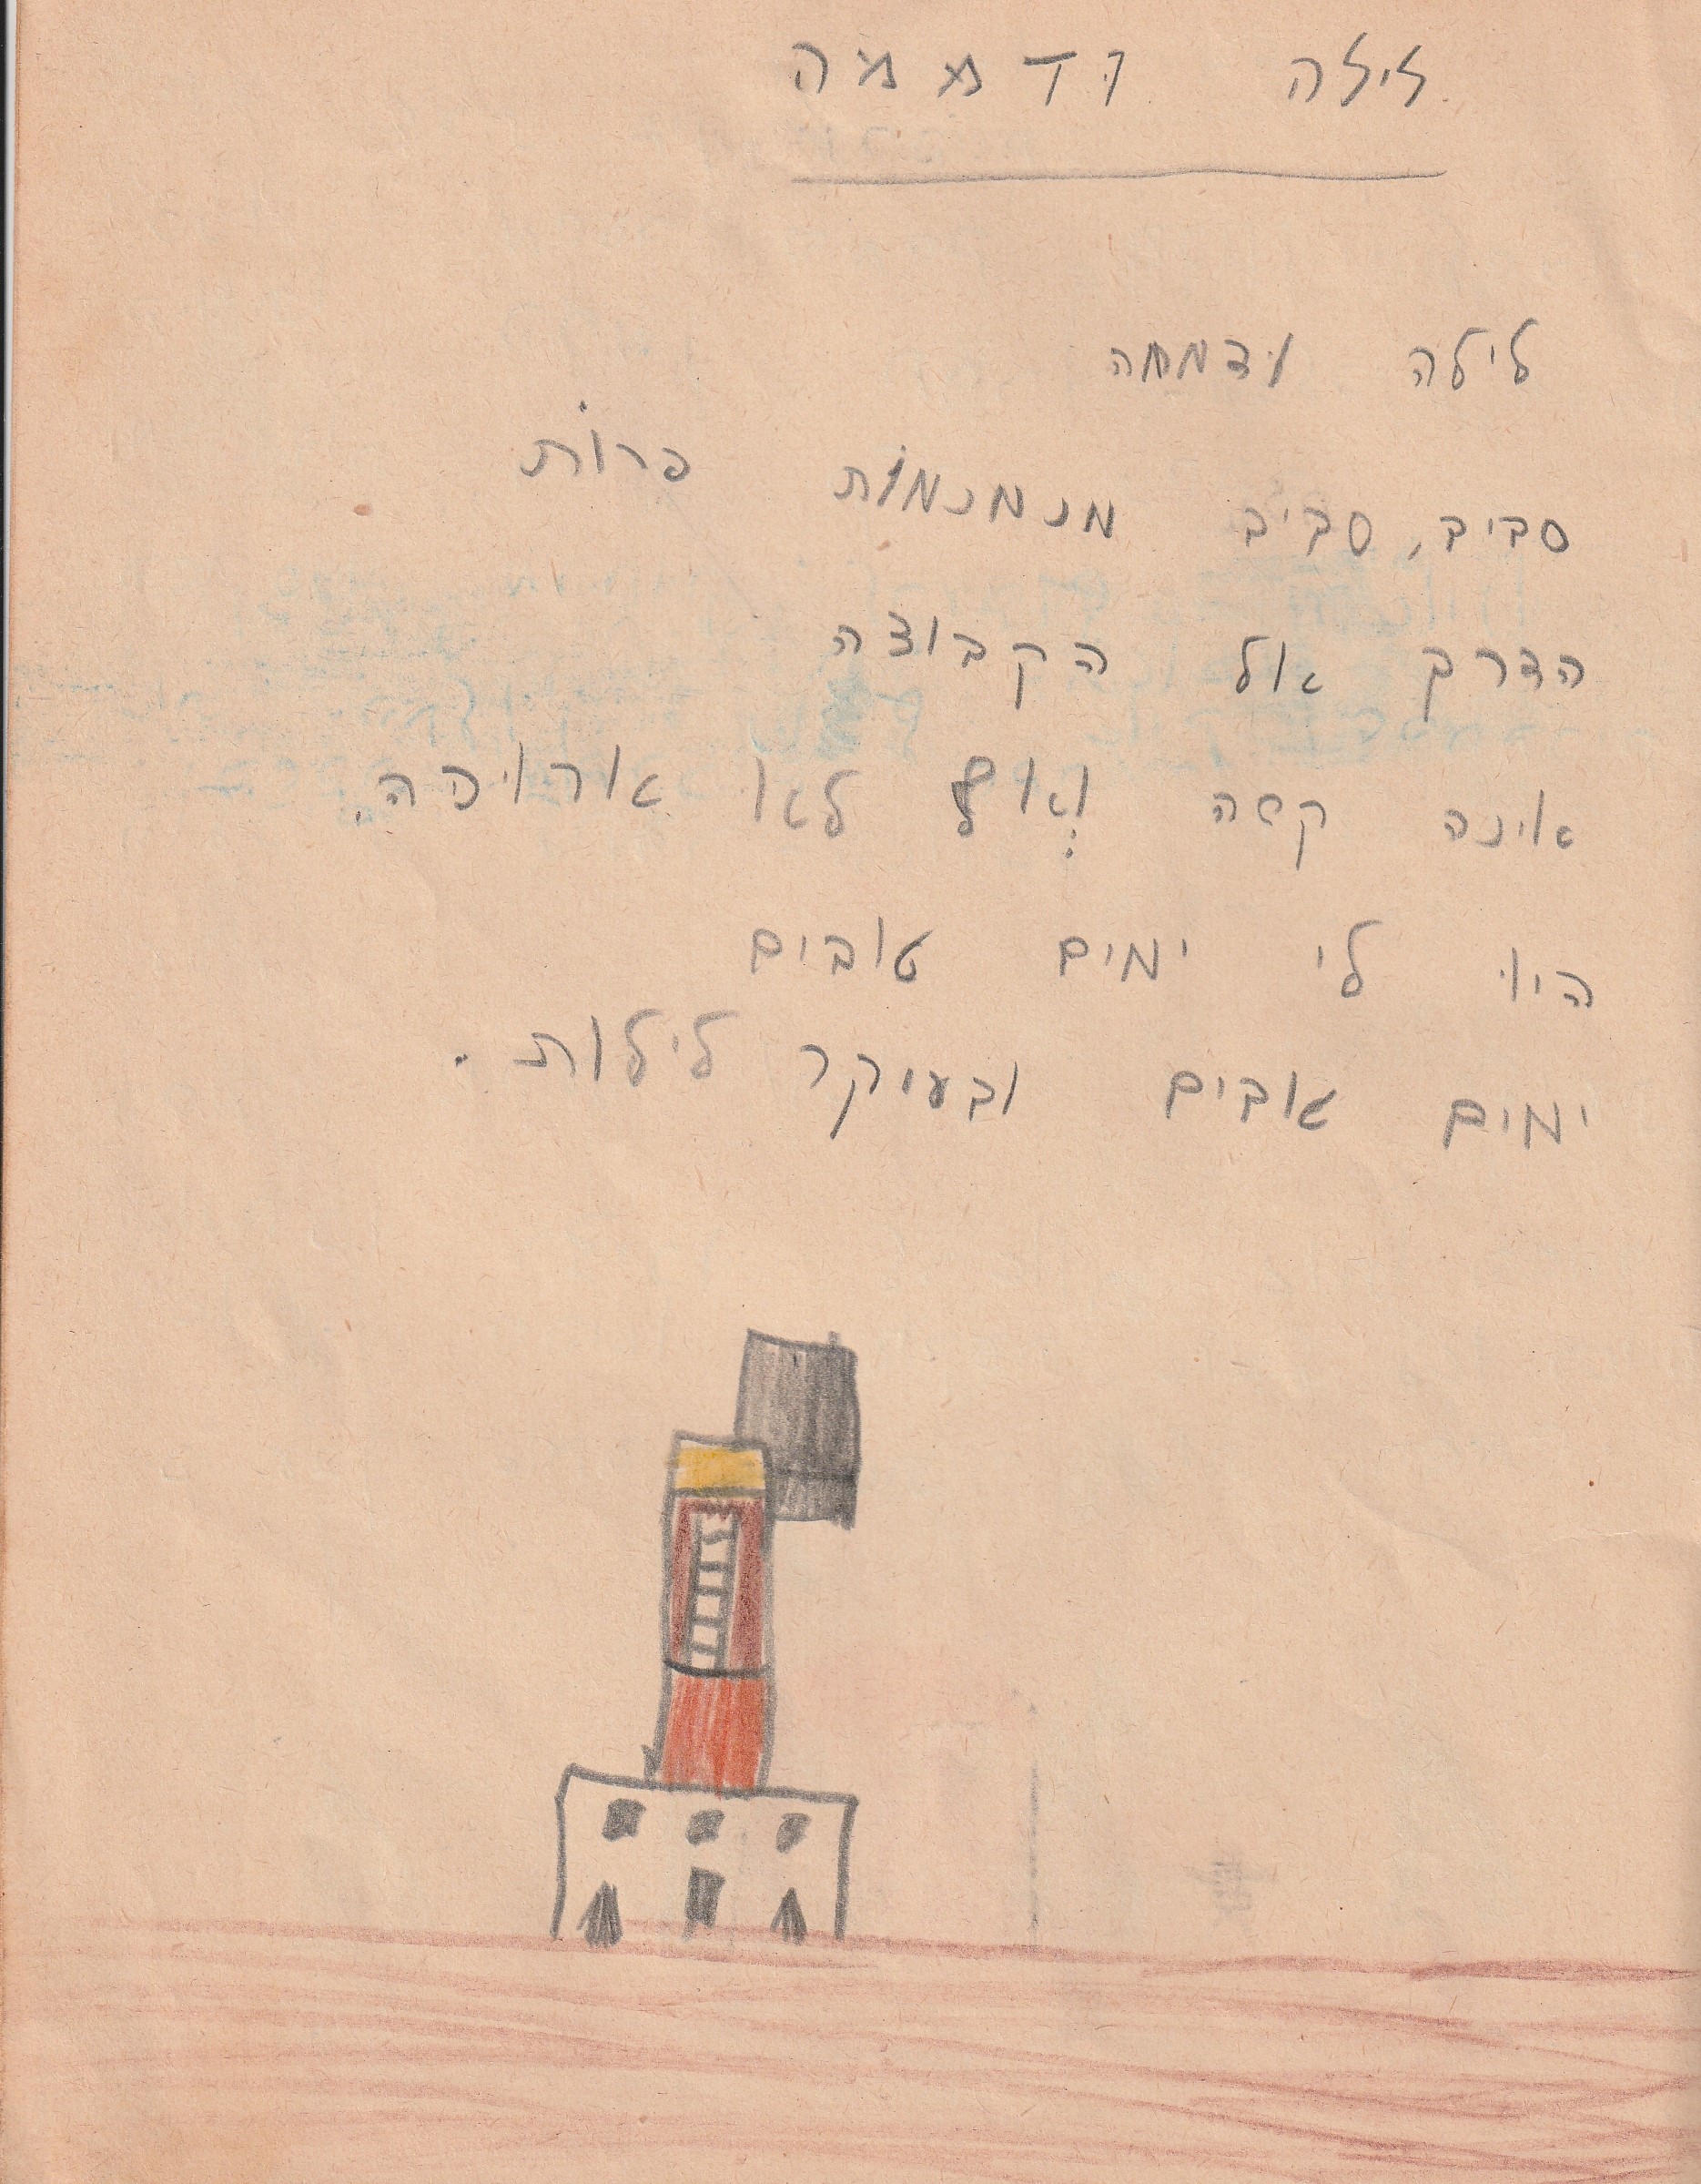 לילה ודממה
לילה ודממה
סביב, סביב מנמנמות פרות
הדרך אל הקבוצה
אינה קשה ואף לא ארוכה.
היו לי ימים טובים
ימים טובים ובעיקר לילות.